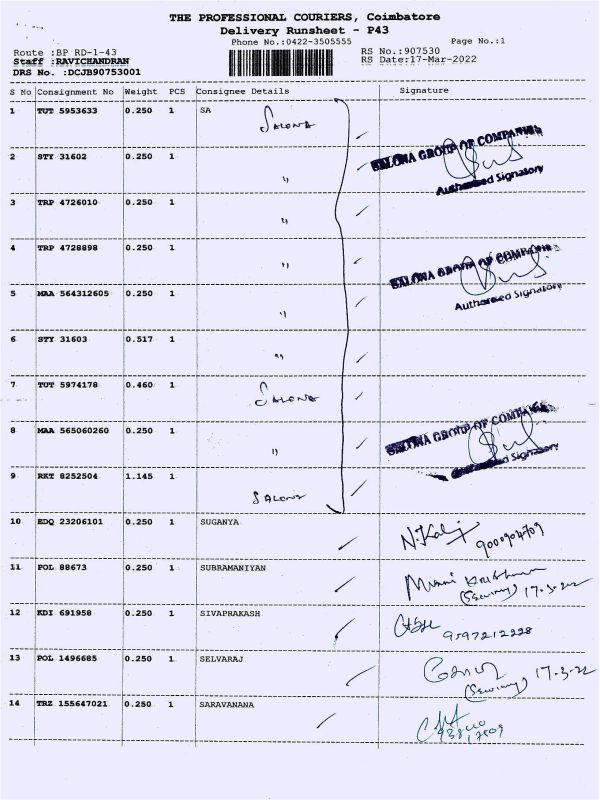 THE PROFESSIONAL COURIERS, Coimbatore
Delivery Runsheet - P43
Phone No.:0422-3505555 Page No.:1
Route :BP RD-1-43 RS No.:907530
Staff :RAVICHANDRAN RS Date:17-Mar-2022
DRS No. :DCJB90753001
S No Consignment No Weight PCS Consignee Details Signature
1 TUT 5953633 0.250 1 SA
Salona
SALONA GROUP OF COMPANIES
2 STY 31602 0.250 1
Authorised Signatory
"
3 TRP 4726010 0.250 1
"
4 TRP 4728898 0.250 1
" SALONA GROUP OF COMPANIES
5 MAA 564312605 0.250 1 Authorised Signatory
"
6 STY 31603 0.517 1
"
7 TUT 5974178 0.460 1
Salona
SALONA GROUP OF COMPANIES
8 MAA 565060260 0.250 1
" Authorised Signatory
9 RKT 8252504 1.145 1
Salona
10 EDQ 23206101 0.250 1 SUGANYA
N.Kalij
11 POL 88673 0.250 1 SUBRAMANIYAN
(Security) 17.3.22
12 KDI 691958 0.250 1 SIVAPRAKASH
9597212228
13 POL 1496685 0.250 1 SELVARAJ
17.3.22
(Security)
14 TRZ 155647021 0.250 1 SARAVANANA